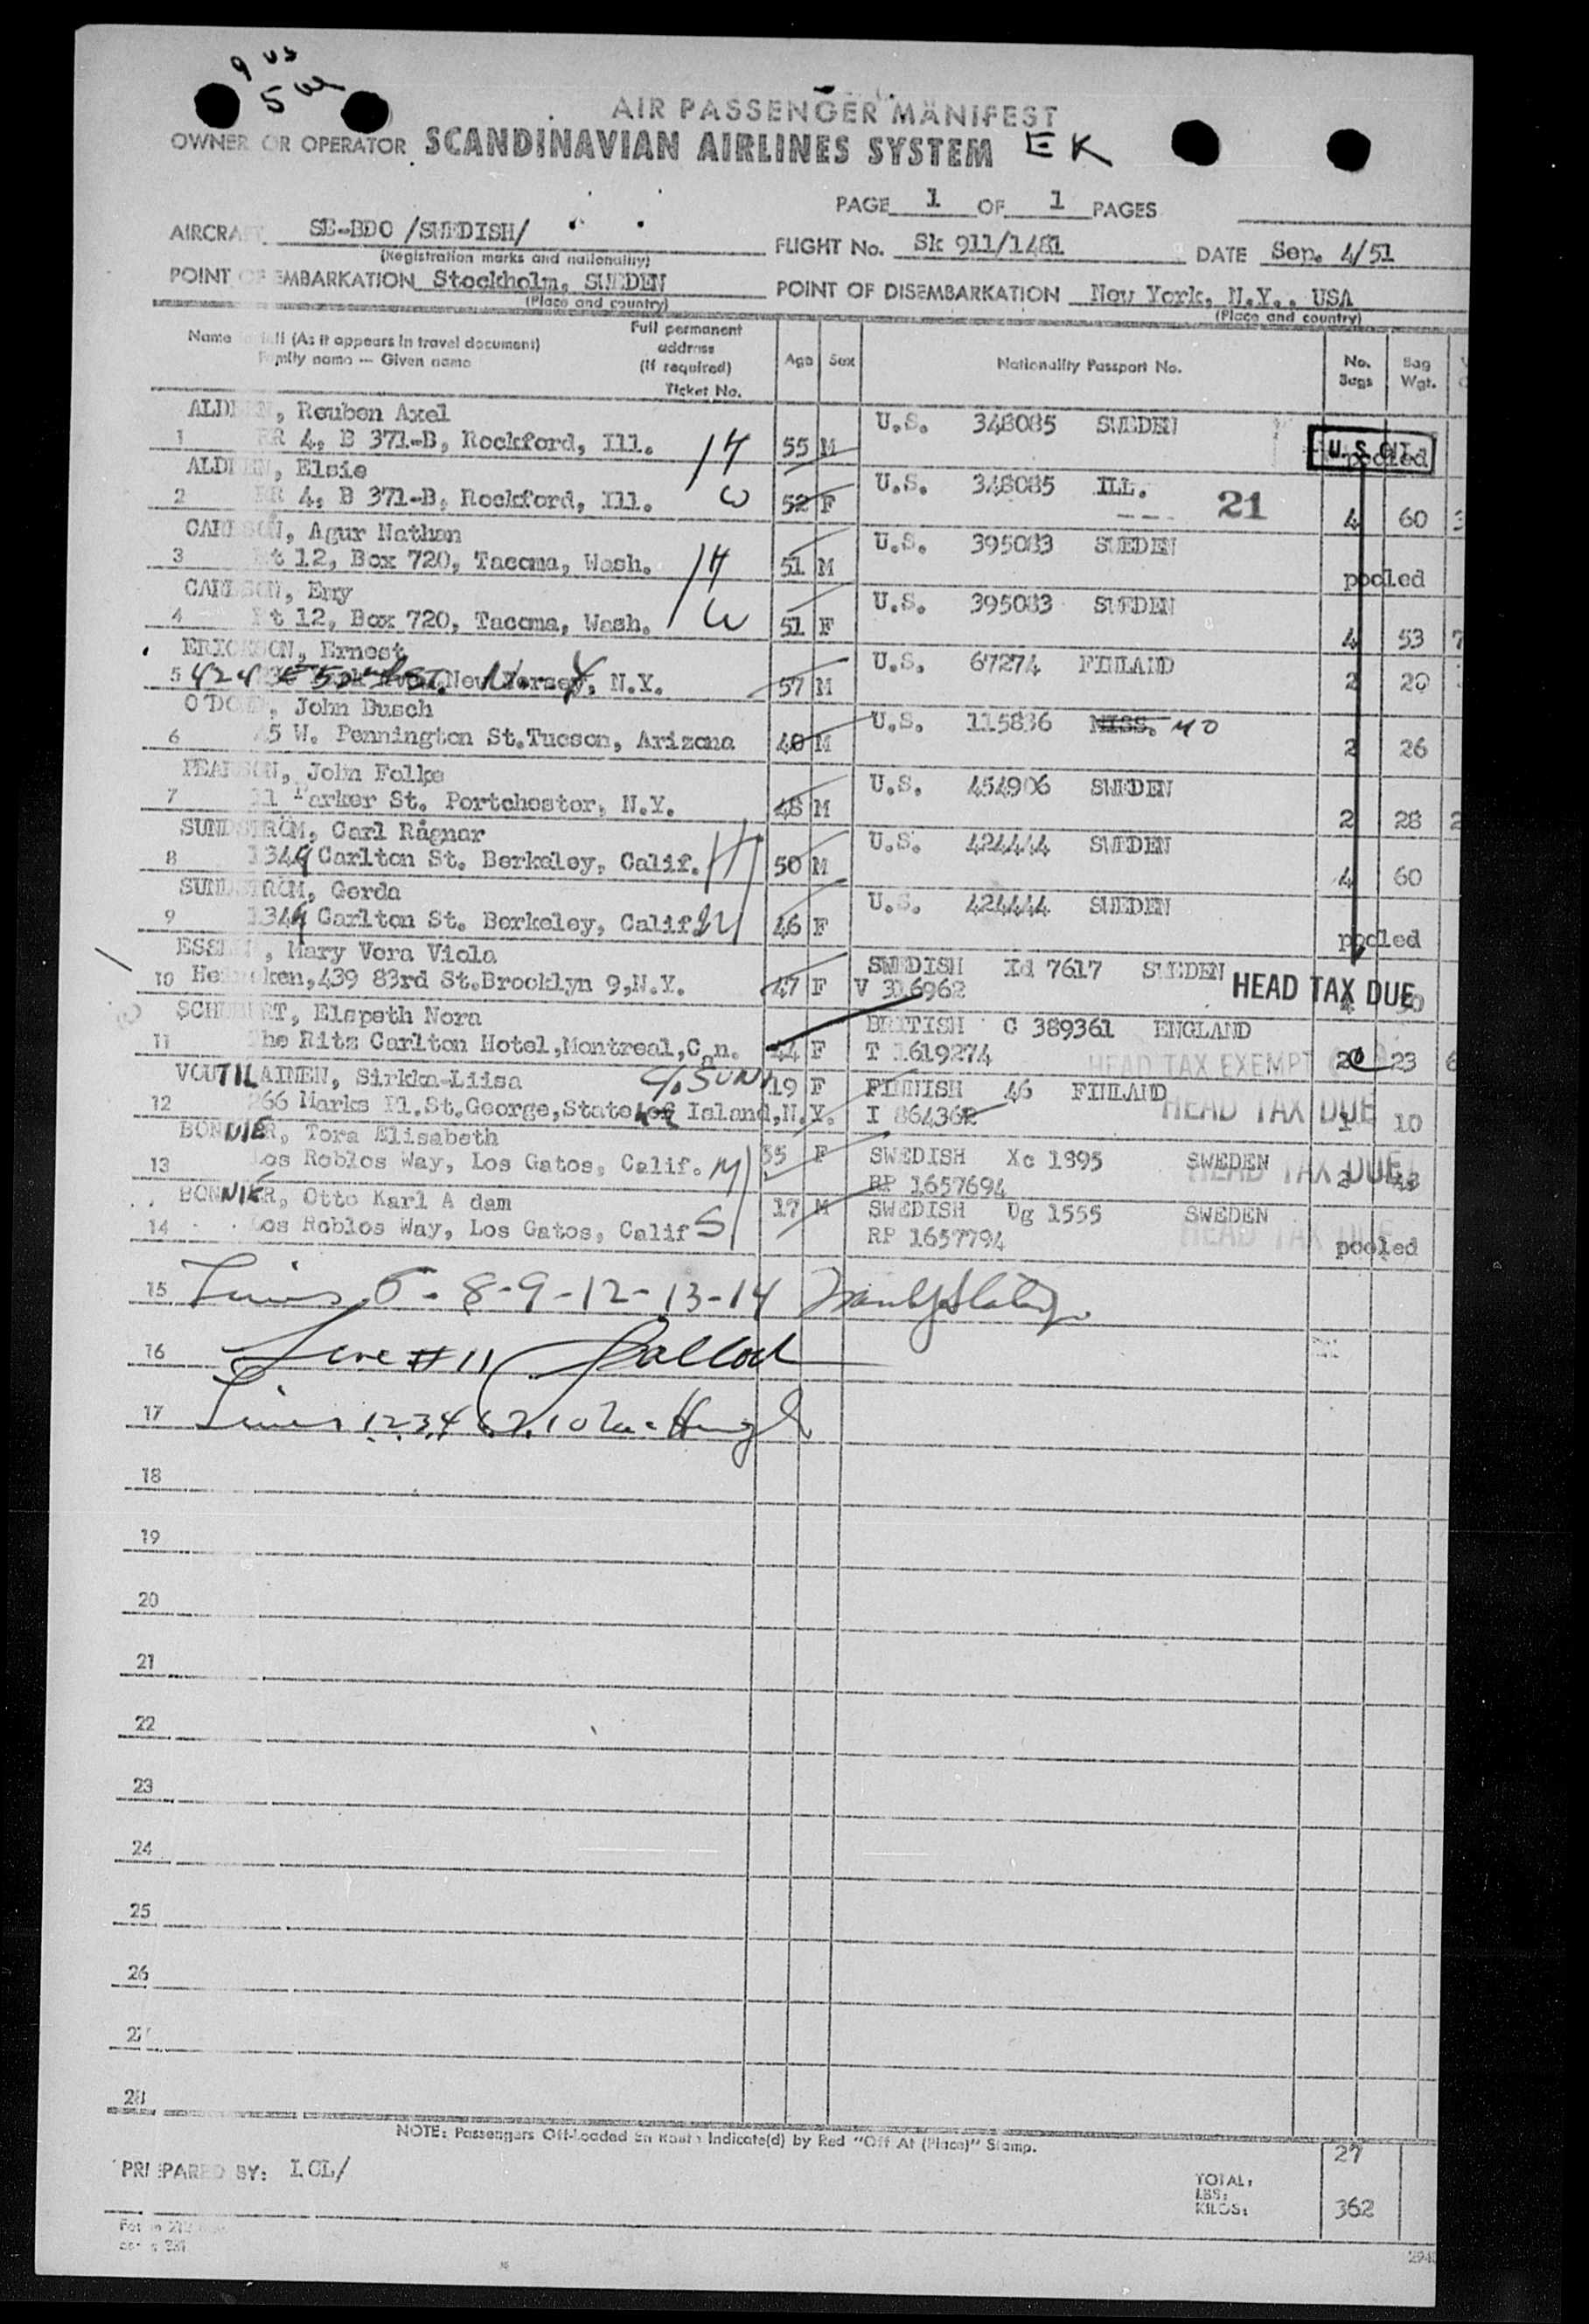 9 US
5
AIR PASSENGER MANIFEST
OWNER OR OPERATOR SCANDINAVIAN AIRLINES SYSTEM EK
PAGE 1 OF 1 PAGES
AIRCRAFT SE-BDO /SWEDISH/ FLIGHT No. Sk 911/1481 DATE Sep. 4/51
(Registration marks and nationality)
POINT OF EMBARKATION Stockholm, SWEDEN POINT OF DISEMBARKATION New York, N.Y., USA
(Place and country) (Place and country)
Name in full (As it appears in travel document)
Family name — Given name
Full permanent address (If required)
Ticket No.
Age Sex Nationality Passport No. No. Bags Bag Wgt.
ALD , Reuben Axel U.S. 348085 SWEDEN
1 RR 4, B 371-B, Rockford, Ill. H 55 M U.S. CIT. pooled
ALD , Elsie U.S. 348085 ILL.
2 RR 4, B 371-B, Rockford, Ill. W 52 F 21 4 60
CARLSON, Agur Nathan U.S. 395083 SWEDEN
3 Rt 12, Box 720, Tacoma, Wash. H 51 M pooled
CARLSON, Emy U.S. 395083 SWEDEN
4 Rt 12, Box 720, Tacoma, Wash. W 51 F 4 53 7
ERICKSON, Ernest U.S. 67274 FINLAND
5 424 New Jersey, N.Y. 57 M 2 20
O'DO , John Busch U.S. 115836 MISS. MO
6 5 W. Pennington St.Tucson, Arizona 40 M 2 26
PEARSON, John Folke U.S. 454906 SWEDEN
7 1 Parker St. Portchester, N.Y. 48 M 2 28 2
SUNDSTRÖM, Carl Rågnar U.S. 424444 SWEDEN
8 1349 Carlton St. Berkeley, Calif. H 50 M 4 60
SUNDSTRÖM, Gerda U.S. 424444 SWEDEN
9 1349 Carlton St. Berkeley, Calif. W 46 F pooled
ESS , Mary Vera Viola SWEDISH Id 7617 SWEDEN
10 ken, 439 83rd St.Brooklyn 9,N.Y. 47 F V 316962 HEAD TAX DUE
SCH RT, Elspeth Nora BRITISH C 389361 ENGLAND
11 The Ritz Carlton Hotel,Montreal,Can. 44 F T 1619274 HEAD TAX EXEMPT 2 23 6
VOUTILAINEN, Sirkka-Liisa 19 F FINNISH 46 FINLAND
12 266 Marks Pl.St.George,Staten Island,N.Y. I 86436 HEAD TAX DUE 1 10
BONNIER, Tora Elisabeth
13 Los Roblos Way, Los Gatos, Calif. M 55 F SWEDISH Xc 1895 SWEDEN HEAD TAX DUE 2
RP 1657694
BONNIER, Otto Karl A dam 17 M SWEDISH Ug 1555 SWEDEN
14 Los Roblos Way, Los Gatos, Calif S RP 1657794 HEAD TAX DUE pooled
15 Lines 5 - 8-9-12-13-14
16 Line # 11
17 Lines 1 2 3 4 6. 7. 10
18
19
20
21
22
23
24
25
26
27
28
NOTE: Passengers Off-Loaded En Route Indicate(d) by Red "Off At (Place)" Stamp.
27
PREPARED BY: LOL/
TOTAL:
LBS:
KILOS: 362